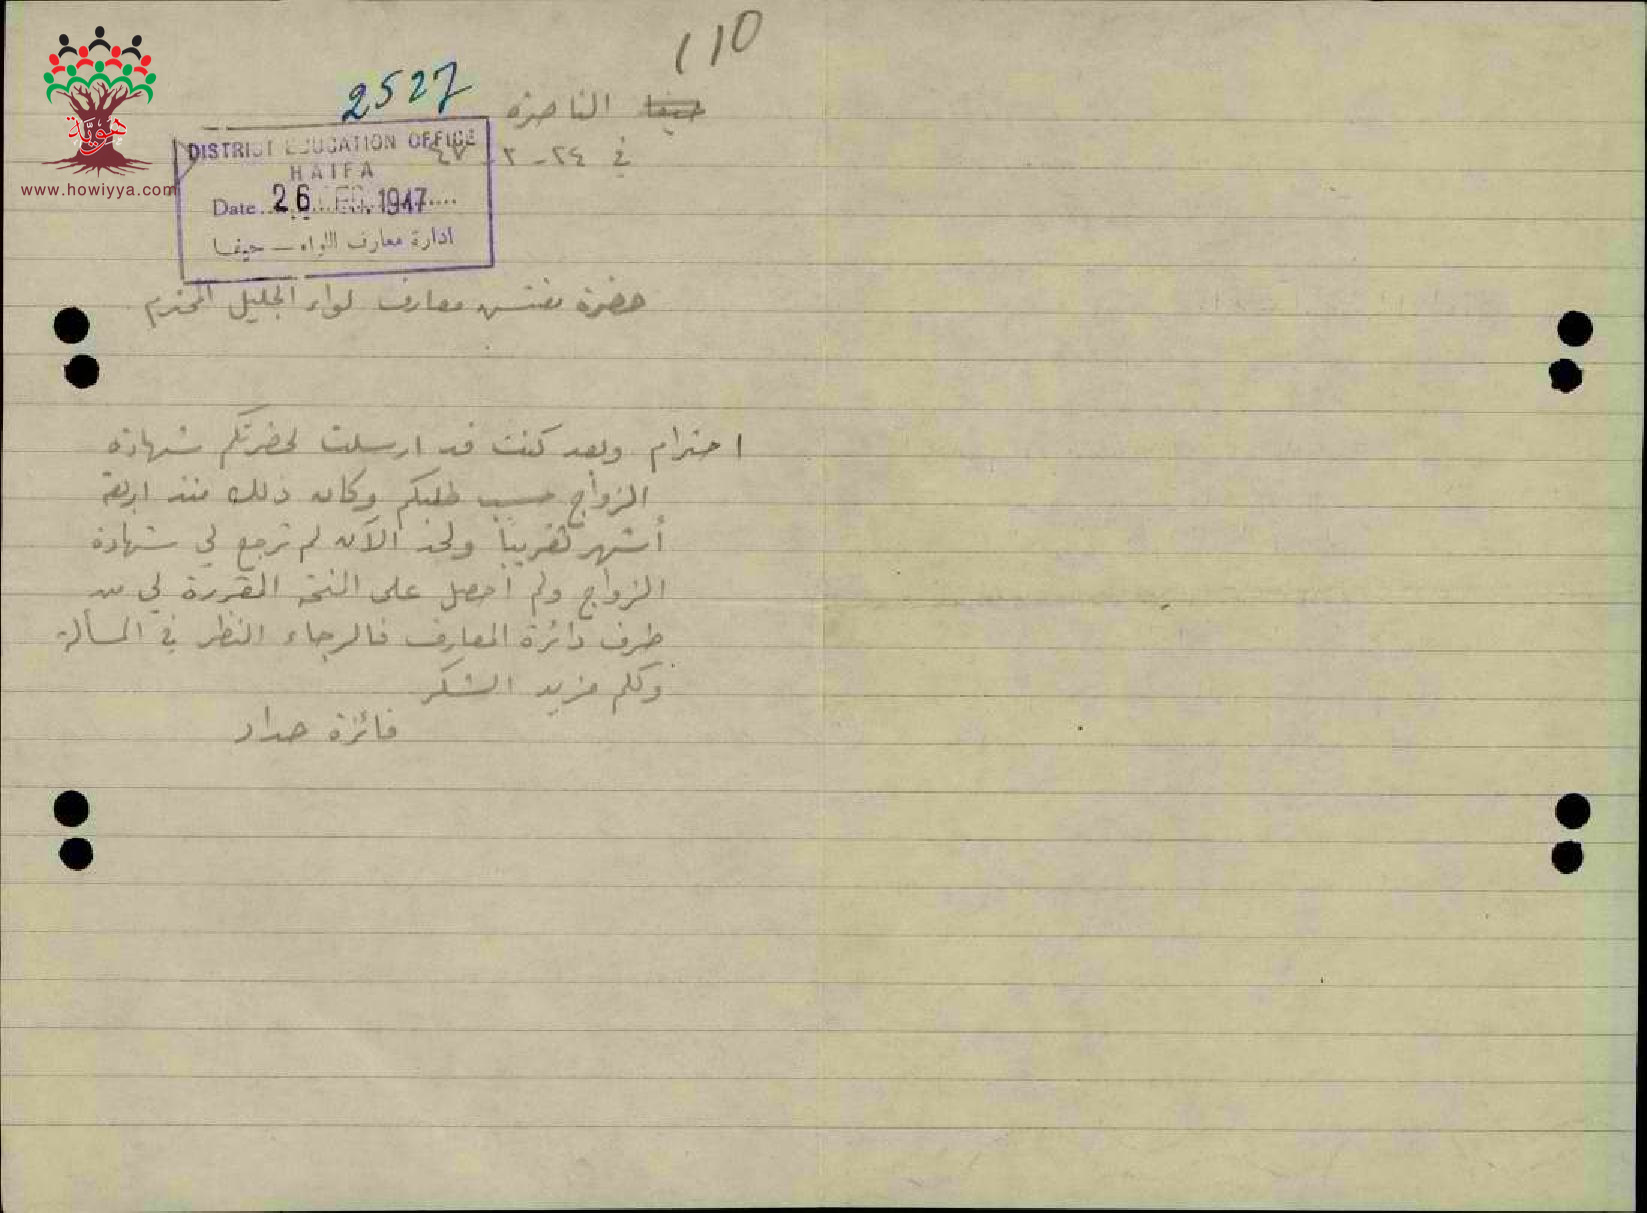 110
2527
حيفا الناصرة
في ٢٤-٢-٤٧
هويّة
www.howiyya.com
DISTRICT EDUCATION OFFICE
HAIFA
Date 26 FEB. 1947
ادارة معارف اللواء – حيفا
حضرة مفتش معارف لواء الجليل المحترم
احترام وبعد كنت قد ارسلت لحضرتكم شهادة
الزواج حسب طلبكم وكان ذلك منذ اربعة
أشهر تقريباً ولحد الآن لم ترجع لي شهادة
الزواج ولم احصل على المقررة لي من
طرف دائرة المعارف فالرجاء النظر في المسألة
ولكم مزيد الشكر
فائزة حداد